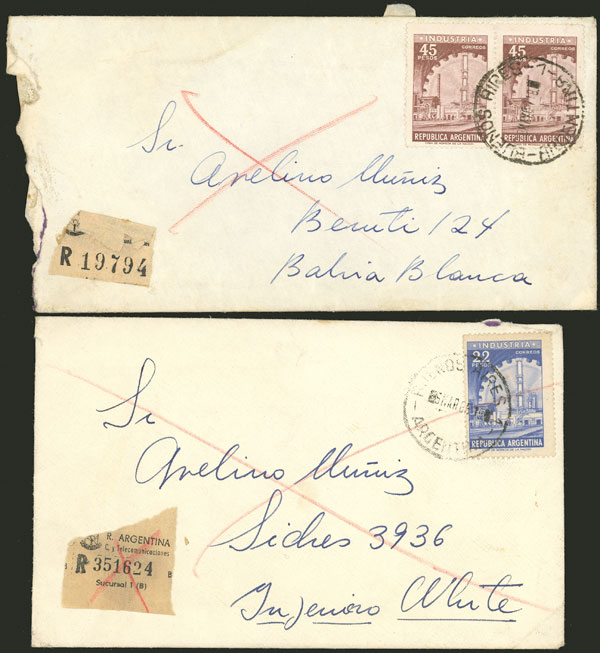 INDUSTRIA
45
PESOS
CORREOS
REPUBLICA ARGENTINA
INDUSTRIA
45
PESOS
CORREOS
REPUBLICA ARGENTINA
Sr.
Avelino Muñiz
Beruti 124
Bahia Blanca
R 19794
INDUSTRIA
22
PESOS
CORREOS
REPUBLICA ARGENTINA
BUENOS AIRES
ARGENTINA
Sr
Avelino Muñiz
Sidres 3936
Ingeniero White
R. ARGENTINA
C. y Telecomunicaciones
R 351624
Sucursal 1 (B)